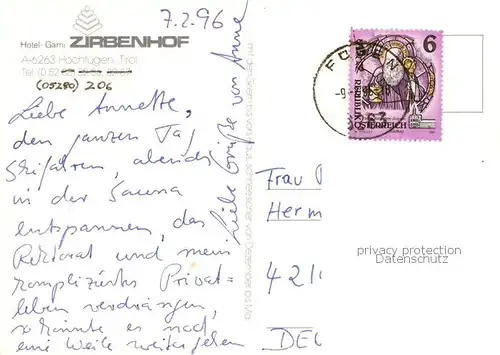 7.2.96
Hotel-Garni ZIRBENHOF
A-6263 Hochfügen, Tirol
Tel (0 52
(05280) 206
Liebe Annette,
den ganzen Tag
Skifahren, abends
in der Sauna
entspannen, das
Rektorat und mein
kompliziertes Privat-
leben verdrängen,
so könnte es noch
eine Weile weitergehen
Liebe Grüße von Anne
FÜGEN
6
REPUBLIK
ÖSTERREICH
Frau
Herm
privacy protection
Datenschutz
421
DEU